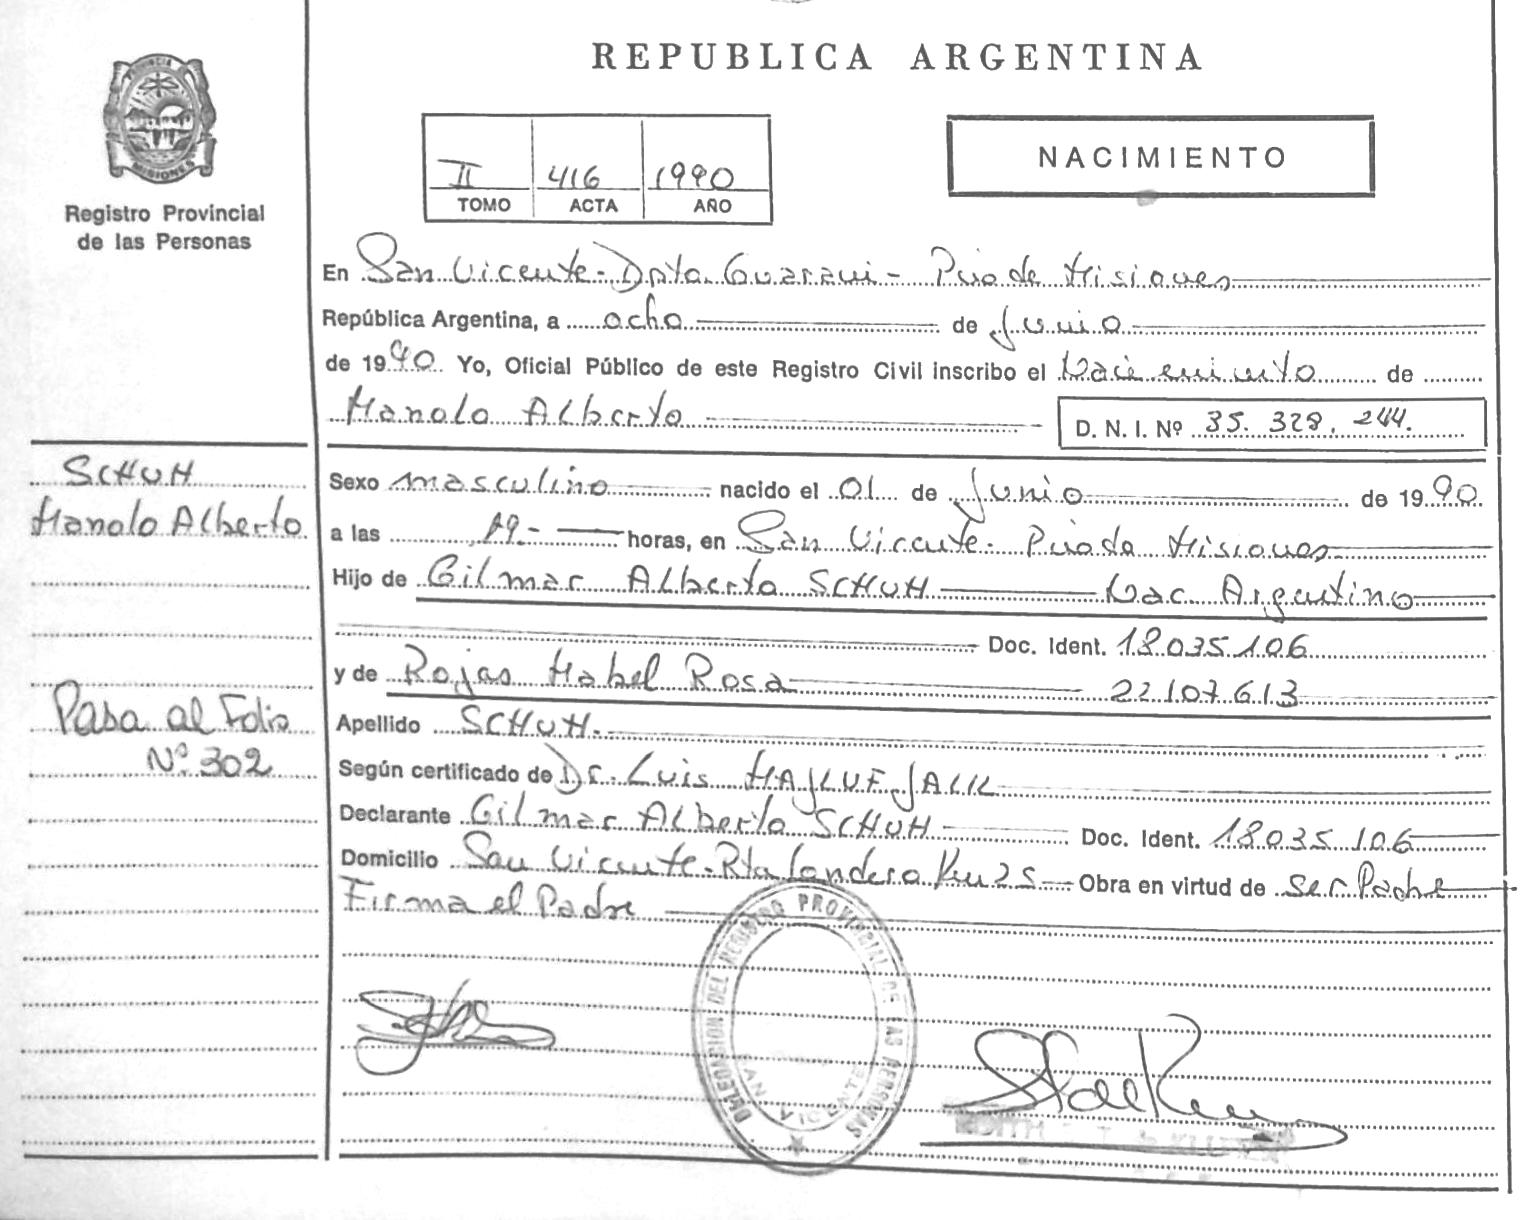 REPUBLICA ARGENTINA
PROVINCIA
MISIONES
Registro Provincial
de las Personas
II 416 1990
TOMO ACTA AÑO
NACIMIENTO
En San Vicente - Dpto. Guarani - Pcia de Misiones
República Argentina, a ocho de Junio
de 1990 Yo, Oficial Público de este Registro Civil inscribo el Nacimiento de
Manolo Alberto
D. N. I. Nº 35.328.244.
SCHUH
Manolo Alberto
Sexo masculino nacido el 01 de Junio de 1990
a las 19.- horas, en San Vicente - Pcia de Misiones
Hijo de Gilmar Alberto SCHUH Nac. Argentino
Doc. Ident. 18.035.106
y de Rojas Mabel Rosa 22.107.613
Pasa al Folio
Nº 302
Apellido SCHUH.
Según certificado de Dr. Luis MAJLUF JALIL
Declarante Gilmar Alberto SCHUH Doc. Ident. 18.035.106
Domicilio San Vicente - Obra en virtud de ser Padre
Firma el Padre
DELEGACION DEL REGISTRO PROVINCIAL DE LAS PERSONAS
SAN VICENTE